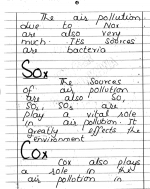 The air pollution
due to Nox
are also very
much. Its sources
are bacteria
Sox
The Sources
of air pollution
are also SO,
SO₂, SO₃ are
play a vital role
in air pollution. It
greatly effects the
environment
Cox
Cox also plays
a role in the
air pollution in